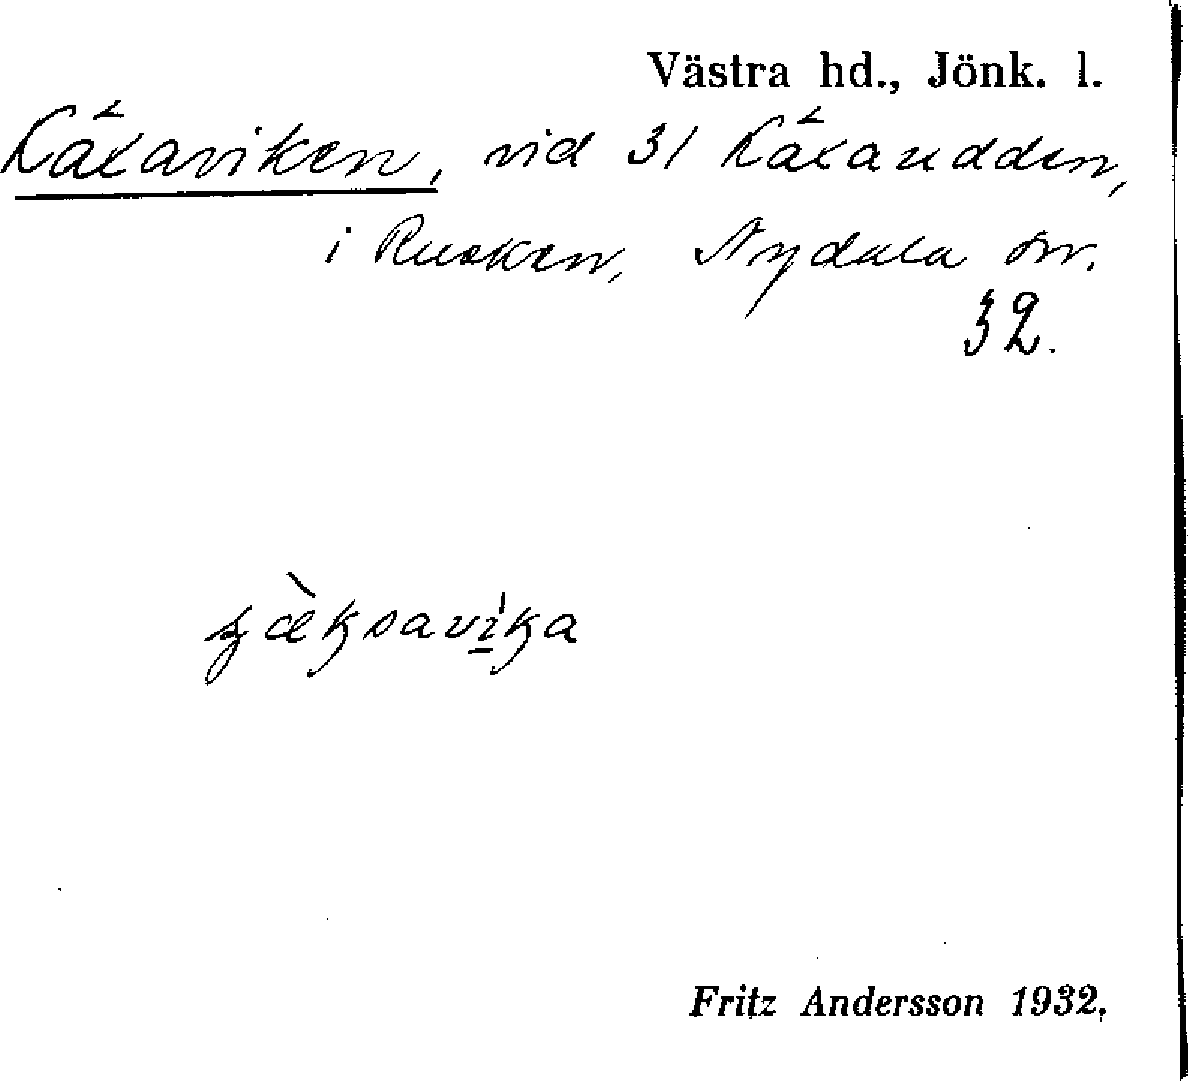 Västra hd., Jönk. l.
Käxaviken, vid 31 Käxaudden,
i Rusken, Nydala sn.
32.
Fritz Andersson 1932.